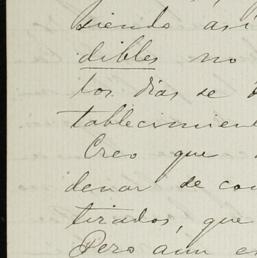 siendo así
dibles no
los días se
tablecimient
Creo que
denar de con
tirados, que
Pero aun e